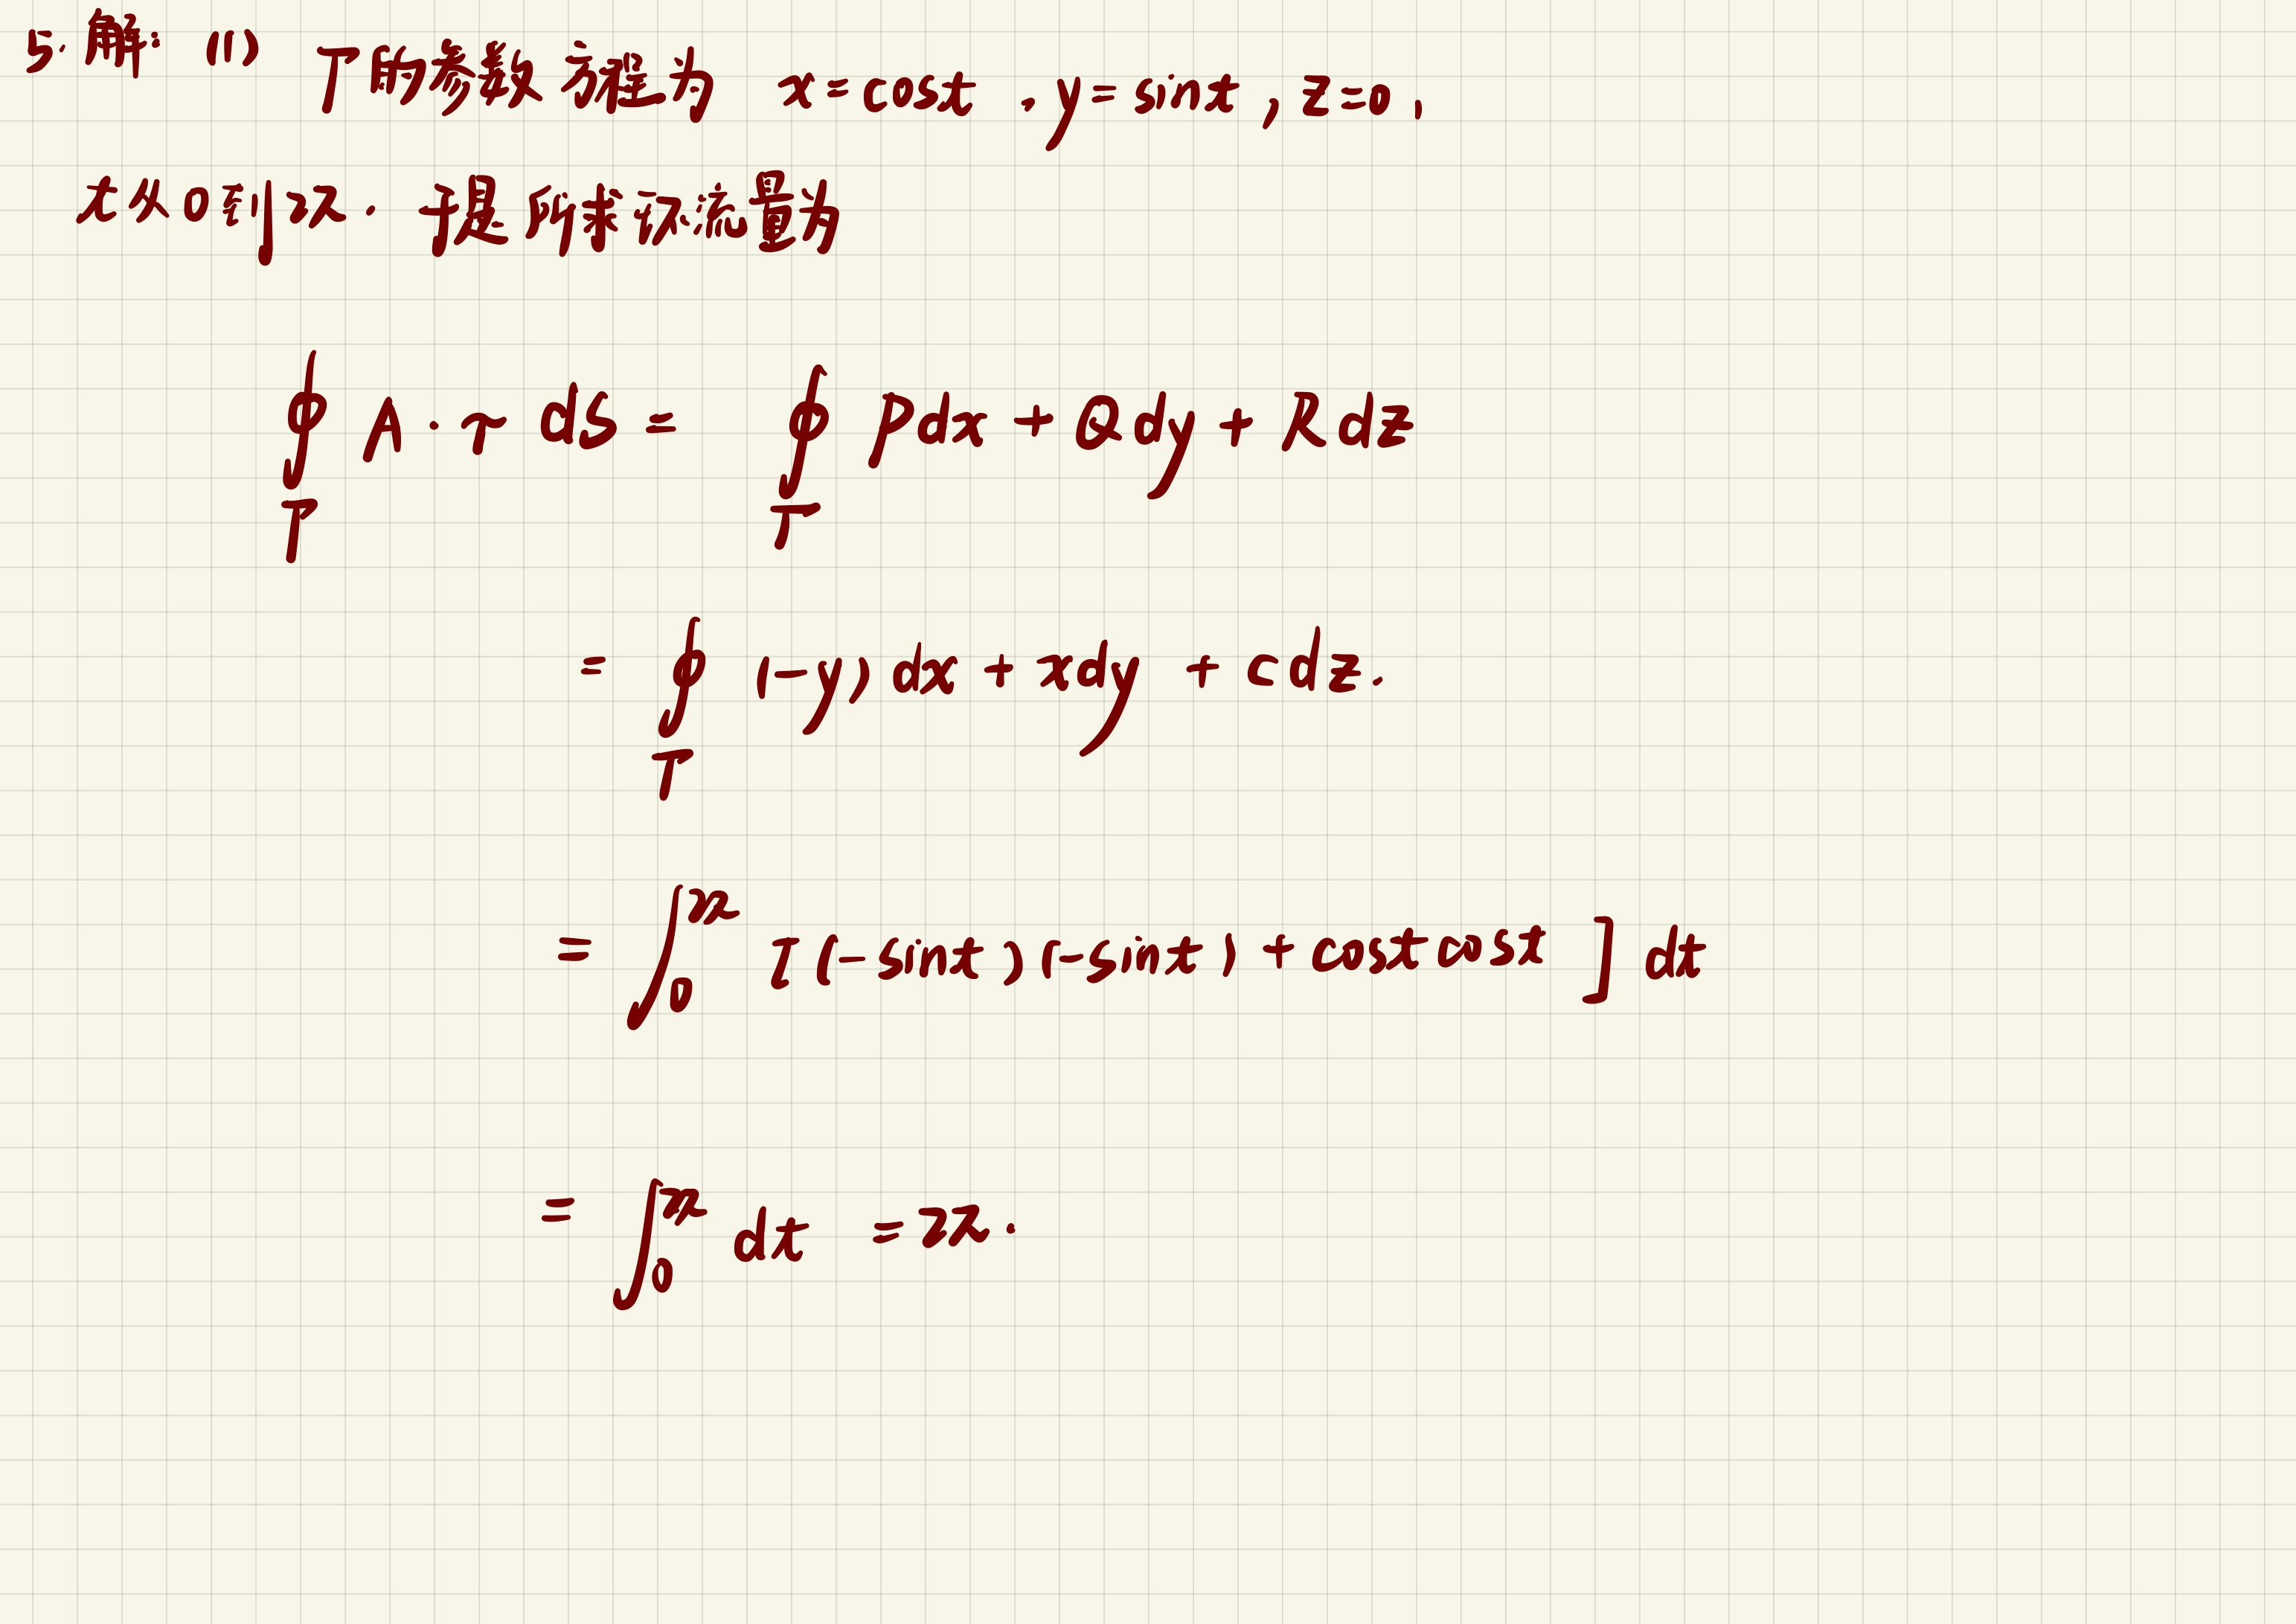 5. 解: (1) Γ的参数方程为 x=cost, y=sint, z=0,
t从0到2π. 于是所求环流量为
∮_Γ A·τ ds = ∮_Γ Pdx + Qdy + Rdz
= ∮_Γ (-y) dx + xdy + cdz.
= ∫_0^{2π} [(-sint)(-sint) + costcost] dt
= ∫_0^{2π} dt = 2π.